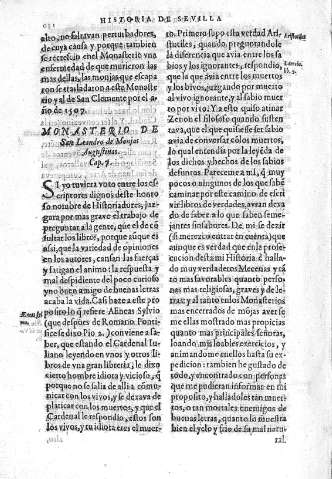 HISTORIA DE SEVILLA
alto, no faltavan perturbadores,
de cuya causa y porque tambien
se recrescio en el Monasterio vna
enfermedad de que murieron las
mas dellas, las monjas que escapa
ron se trasladaron a este Monaste
rio y al de San Clemente por el a-
ño de 1507.
MONASTERIO DE
San Leandro de Monjas
Augustinas.
Cap. 7.
SI yo tuviera voto entre los es-
criptores dignos deste honro
so nombre de Historiadores, juz-
gara por mas grave el trabajo de
preguntar a la gente, que el de con
sultar los libros, porque aunque es
assi, que la variedad de opiniones
en los autores, cansan las fuerças
y fatigan el animo: la respuesta y
mal despidiente del poco curioso
y no buen amigo de buenas letras
acaba la vida. Casi haze a este pro
posito lo q̃ refiere AEneas Sylvio
(que despues de Romano Ponti-
fice se llamo Pio 2.) conviene a sa-
ber, que estando el Cardenal Iu-
liano leyendo en vnos y otros li-
bros de vna gran libreria; le dixo
cierto hombre idiota y vicioso, q̃
porque no se salia de alli a comu-
nicar con los vivos, y se dexava de
platicar con los muertos, y que el
Cardenal le respondio, estos son
los vivos, y tu idiota eres el muer-
to. Primero supo esta verdad Ari-
stoteles, quando preguntandole
Aristoteles
la diferencia que avia entre los sa-
bios y los ignorantes, respondio,
que la que avia entre los muertos
y los bivos, juzgando por muerto
al vivo ignorante, y al sabio muer
to por vivo. Y a esto quiso atinar
Zenon el filosofo quando susten
tava, que el que quisiesse ser sabio
avia de conversar cõ los muertos,
lo qual entendia por la leyda de
los dichos y hechos de los sabios
defuntos. Pareceme a mi, q̃ muy
pocos o ningunos de los que sabẽ
caminar por este camino de escri-
vir libros de verdades, avran dexa
do de saber a lo que saben seme-
jantes sinsabores. De mi se dezir
(si merezco entrar en cuenta) que
aunque es verdad que en la prose-
cucion desta mi Historia è halla-
do muy verdaderos Mecenas y tã
to mas favorables quanto perso-
nas mas religiosas, graves y de le-
tras: y al tanto en los Monasterios
mas encerrados de mojas aver se
me ellas mostrado mas propicias
quanto mas principales señoras,
loando mis loables exercicios, y
animandome a ellos hasta su ex-
pedicion: tambien he gustado de
todo, y encontrados con personas
que me pudieran informar en mi
proposito, y hallado les tan muer-
tos, o tan mortales enemigos de
buenas letras, quanto lo muestra
bien el yelo y frio de su mal natu-